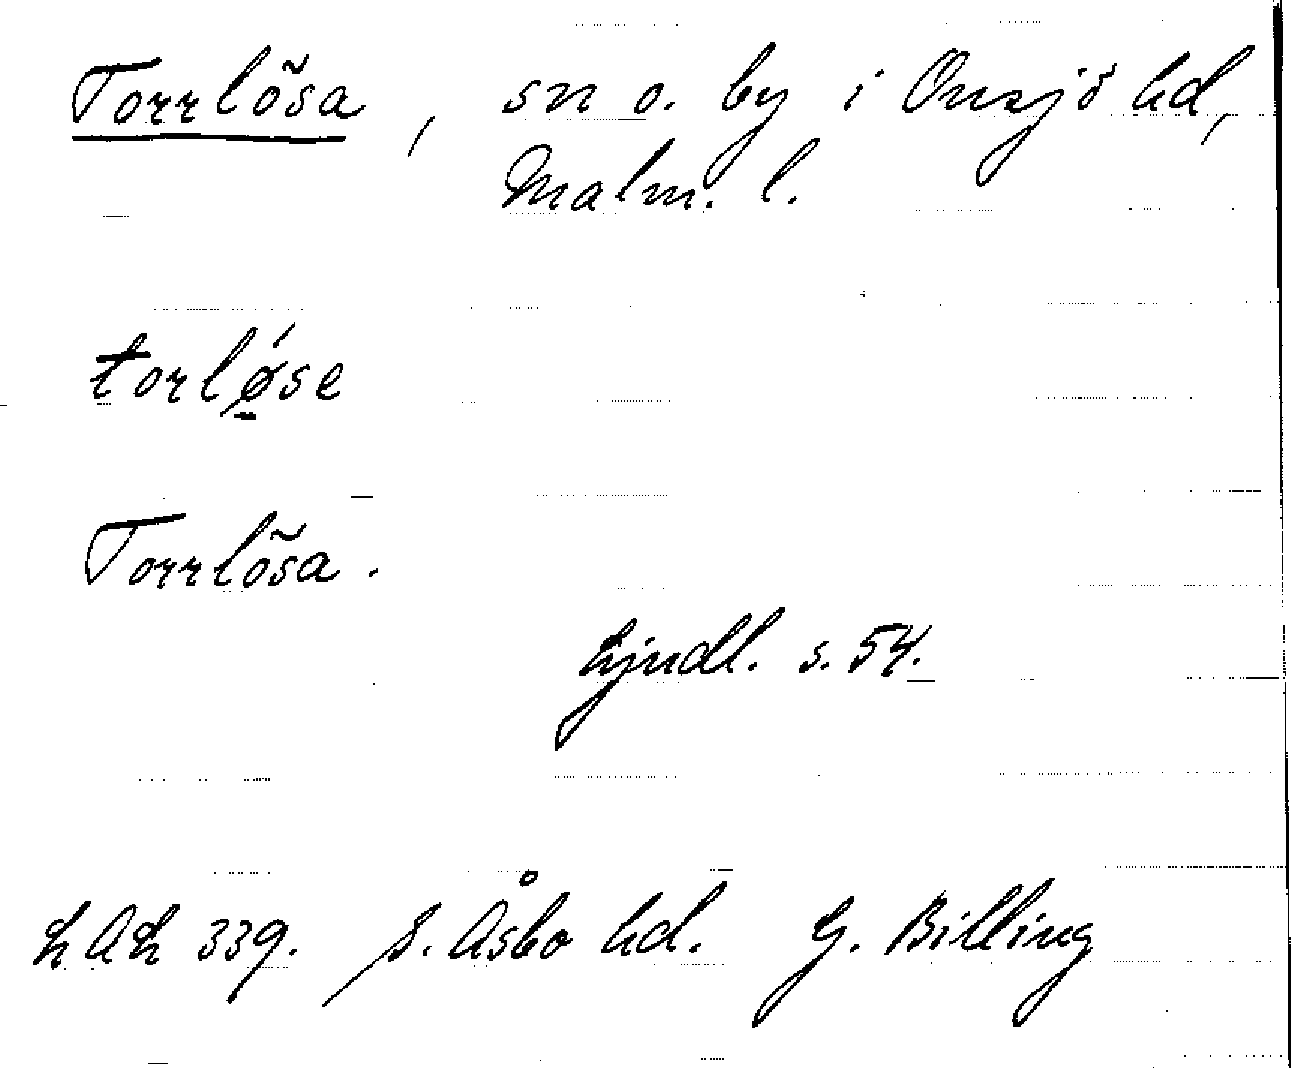 Torrlösa, sn o. by i Onsjö hd,
Malm. l.
torlǿ̱se
Torrlösa.
Ljudl. s. 54.
LAL 339. S. Åsbo hd. G. Billing